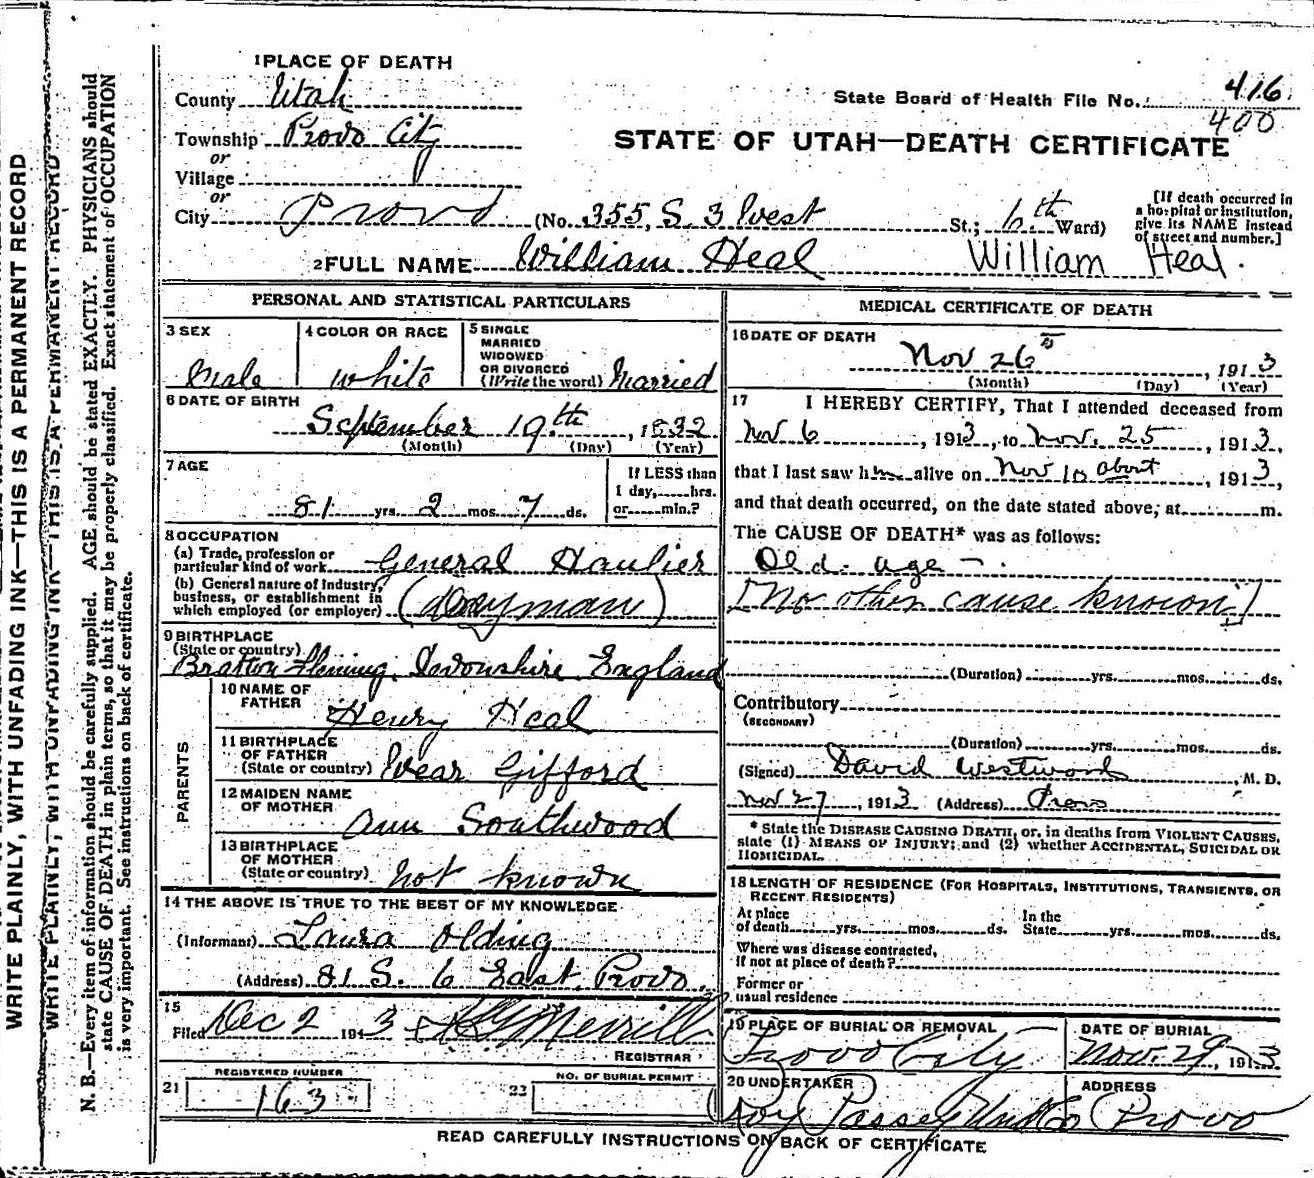 WRITE PLAINLY, WITH UNFADING INK—THIS IS A PERMANENT RECORD
WRITE PLAINLY, WITH UNFADING INK—THIS IS A PERMANENT RECORD
N. B.—Every item of information should be carefully supplied. AGE should be stated EXACTLY. PHYSICIANS should
state CAUSE OF DEATH in plain terms, so that it may be properly classified. Exact statement of OCCUPATION
is very important. See instructions on back of certificate.
1 PLACE OF DEATH
County Utah
State Board of Health File No. 416
400
Township Provo City
or
STATE OF UTAH—DEATH CERTIFICATE
Village
or
City Provo (No. 355, S. 3 West St.; 6th Ward)
[If death occurred in
a hospital or institution,
give its NAME instead
of street and number.]
2 FULL NAME William Heal William Heal.
PERSONAL AND STATISTICAL PARTICULARS
3 SEX
Male
4 COLOR OR RACE
white
5 SINGLE
MARRIED
WIDOWED
OR DIVORCED
(Write the word) Married
6 DATE OF BIRTH
September 19th, 1832
(Month) (Day) (Year)
7 AGE
81 yrs. 2 mos. 7 ds.
If LESS than
1 day, hrs.
or min.?
8 OCCUPATION
(a) Trade, profession or
particular kind of work General Haulier
(b) General nature of industry,
business, or establishment in
which employed (or employer)
9 BIRTHPLACE
(State or country)
Bratton Fleming, Devonshire England
PARENTS
10 NAME OF
FATHER Henry Heal
11 BIRTHPLACE
OF FATHER
(State or country) Wear Gifford
12 MAIDEN NAME
OF MOTHER Ann Southwood
13 BIRTHPLACE
OF MOTHER
(State or country) not known
14 THE ABOVE IS TRUE TO THE BEST OF MY KNOWLEDGE
(Informant) Laura Olding
(Address) 81 S. 6 East. Provo.
15
Filed Dec 2 1913 Merrill
REGISTRAR
21 REGISTERED NUMBER
163
22 NO. OF BURIAL PERMIT
MEDICAL CERTIFICATE OF DEATH
16 DATE OF DEATH
Nov 26, 1913
(Month) (Day) (Year)
17 I HEREBY CERTIFY, That I attended deceased from
Nov 6, 1913, to Nov. 25, 1913,
that I last saw him alive on Nov 10 about, 1913,
and that death occurred, on the date stated above, at m.
The CAUSE OF DEATH* was as follows:
Old age
[No other cause known]
(Duration) yrs. mos. ds.
Contributory
(SECONDARY)
(Duration) yrs. mos. ds.
(Signed) David Westwood, M. D.
Nov 27, 1913 (Address) Provo
* State the DISEASE CAUSING DEATH, or, in deaths from VIOLENT CAUSES,
state (1) MEANS OF INJURY; and (2) whether ACCIDENTAL, SUICIDAL OR
HOMICIDAL.
18 LENGTH OF RESIDENCE (FOR HOSPITALS, INSTITUTIONS, TRANSIENTS, OR
RECENT RESIDENTS)
At place
of death yrs. mos. ds.
In the
State yrs. mos. ds.
Where was disease contracted,
if not at place of death?
Former or
usual residence
19 PLACE OF BURIAL OR REMOVAL
Provo City
DATE OF BURIAL
Nov. 29, 1913
20 UNDERTAKER
Roy Passey Und Co
ADDRESS
Provo
READ CAREFULLY INSTRUCTIONS ON BACK OF CERTIFICATE